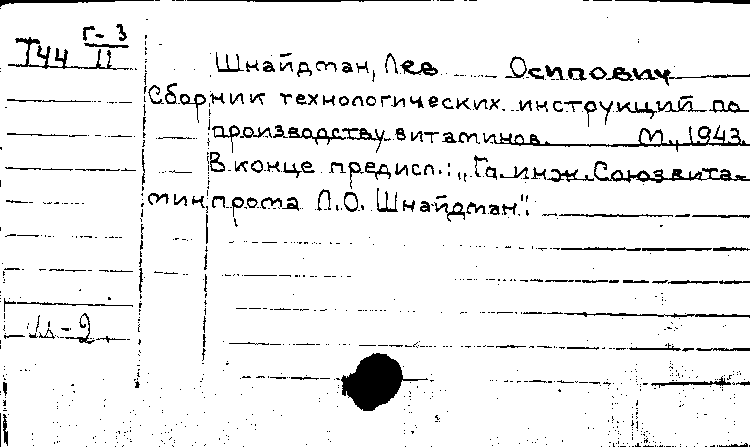 Г-3
Т44 II
Шнайдман, Лев Осипович
Сборник технологических инструкций по
производству витаминов. М., 1943.
В конце предисл.: „Гл. инж. Союзвита-
минпрома Л.О. Шнайдман".
М-2.